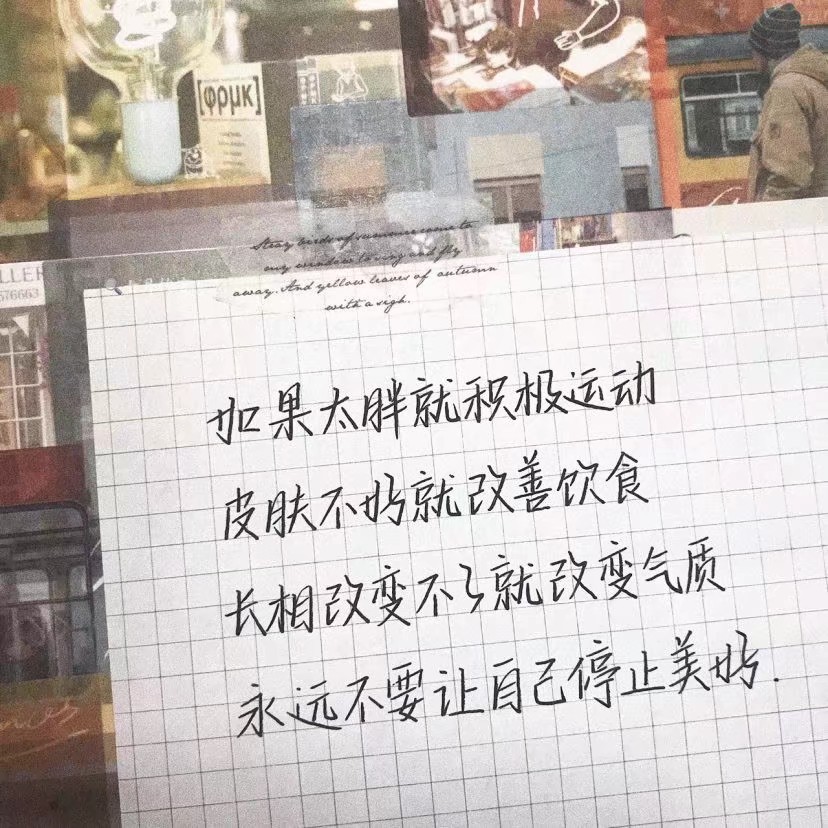 [φρμκ]
LLER
576663
Stray birds of summer come to
my window to sing and fly
away. And yellow leaves of autumn
with a sigh.
如果太胖就积极运动
皮肤不好就改善饮食
长相改变不了就改变气质
永远不要让自己停止美好.